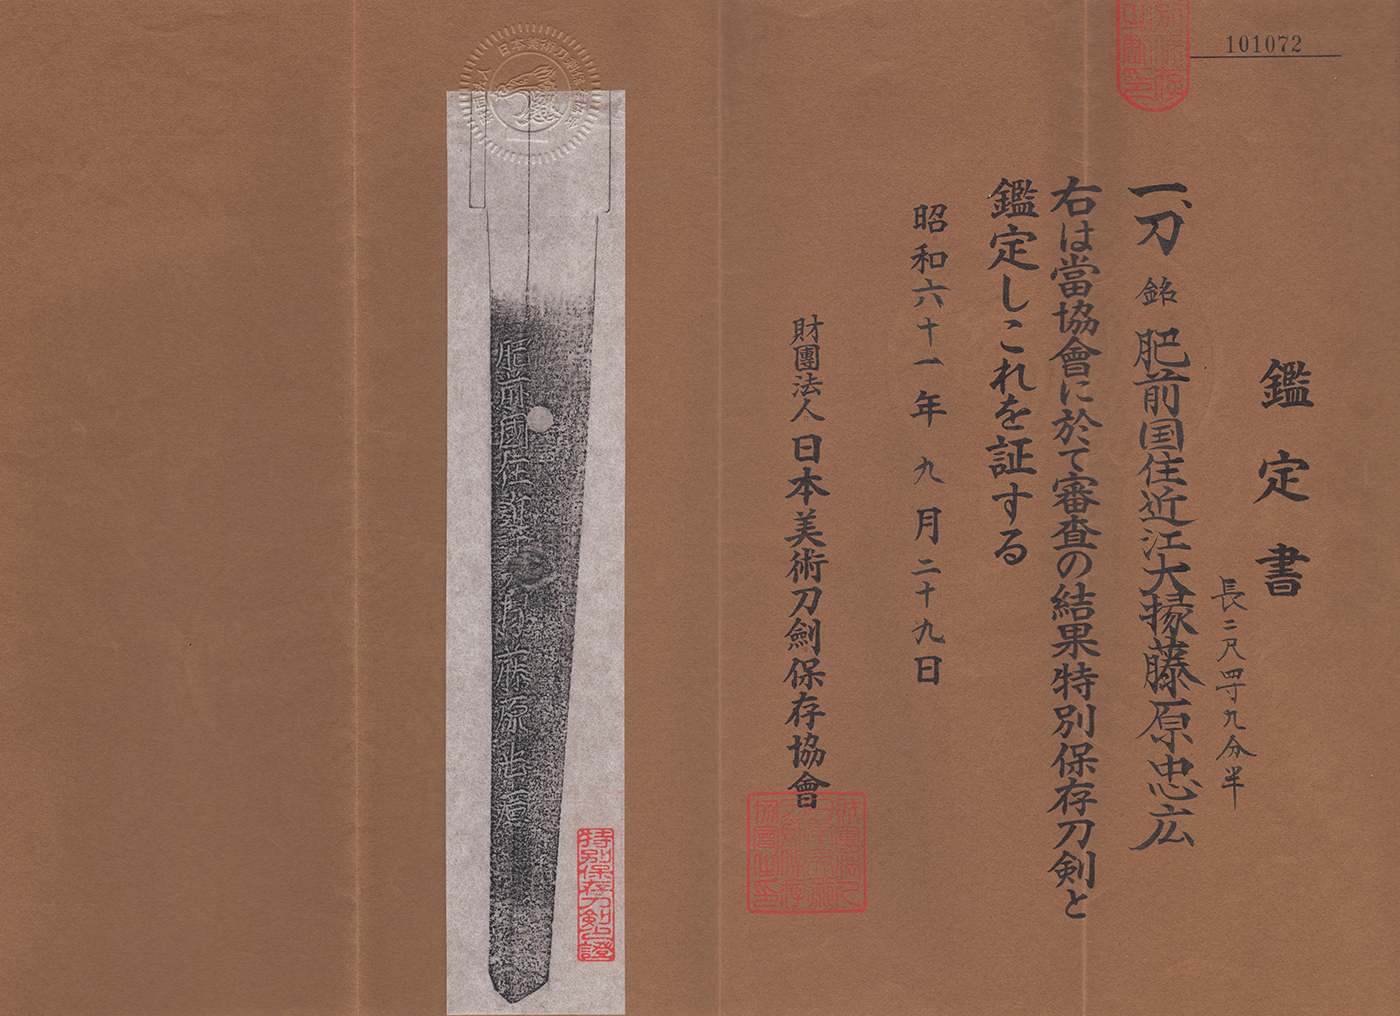 101072
鑑定書
長二尺四寸九分半
一、刀 銘 肥前国住近江大掾藤原忠広
右は當協會に於て審査の結果特別保存刀剣と
鑑定しこれを証する
昭和六十一年 九月二十九日
財團法人 日本美術刀劍保存協會
肥前國住近
藤原忠廣
特別保存刀剣證